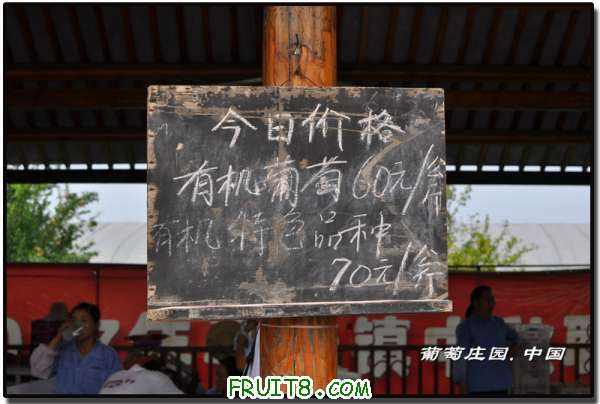 今日价格
有机葡萄60元/斤
有机特色品种
70元/斤
葡萄庄园.中国
FRUIT8.COM